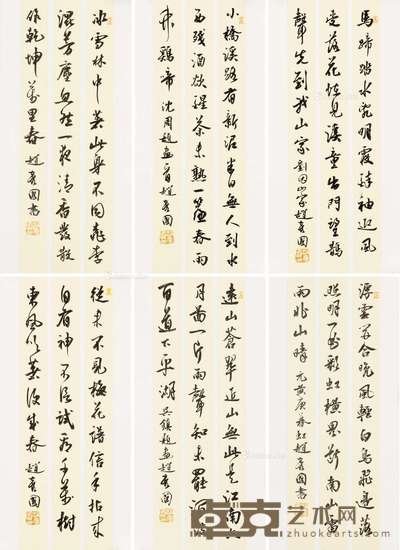 馬蹄踏水亂明霞醉袖迎風
受落花怪見溪童出門望鵲
聲先到我山家 劉因山家 趙國書
小橋溪路有新泥半日無人到水
西殘酒欲醒茶未熟一簾春雨
竹雞啼 沈周題畫一首 趙國
冰雪林中著此身不同桃李
混芳塵忽然一夜清香發散
作乾坤萬里春 趙國書
浮雲開合晚風輕白鳥飛邊落
照明一曲彩虹橫界斷南山雷
雨北山晴 元黃庚暮虹 趙國書
遠山蒼翠近山無此是江南六
月圖一片雨聲知未罷
百道下平湖 吳鎮題畫 趙國
從來不見梅花譜信手拈來
自有神不信試看千萬樹
東風吹著便成春 趙國
艺术网